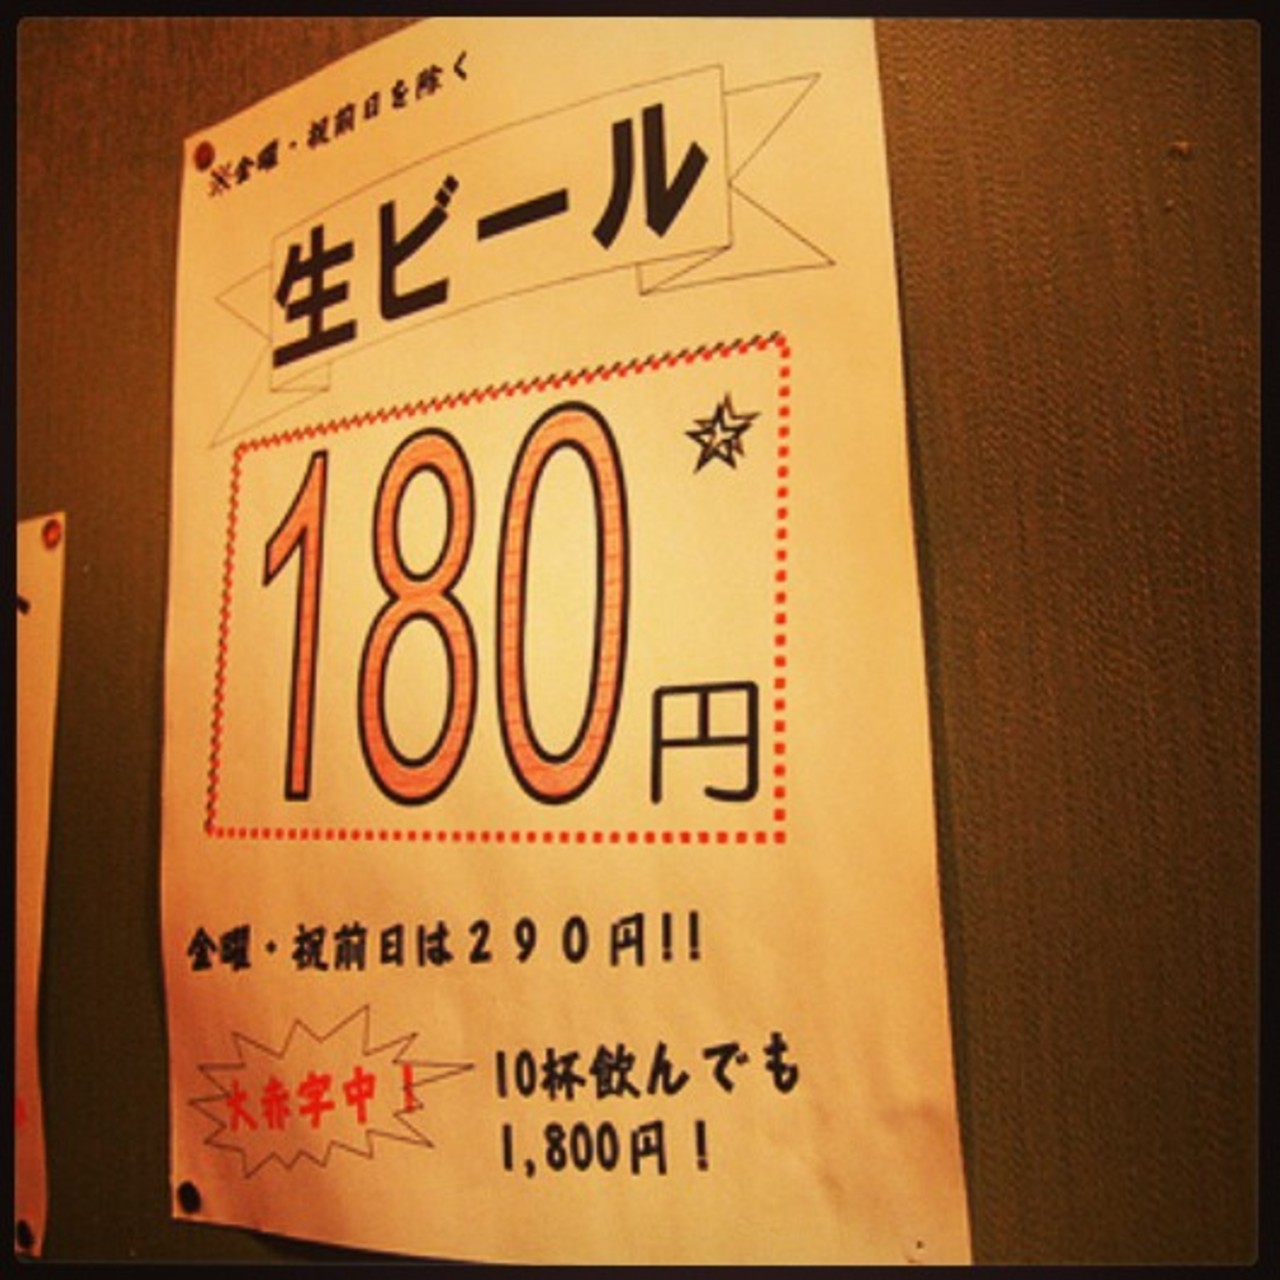 ※金曜・祝前日を除く
生ビール
180円
金曜・祝前日は290円!!
大赤字中!
10杯飲んでも
1,800円!